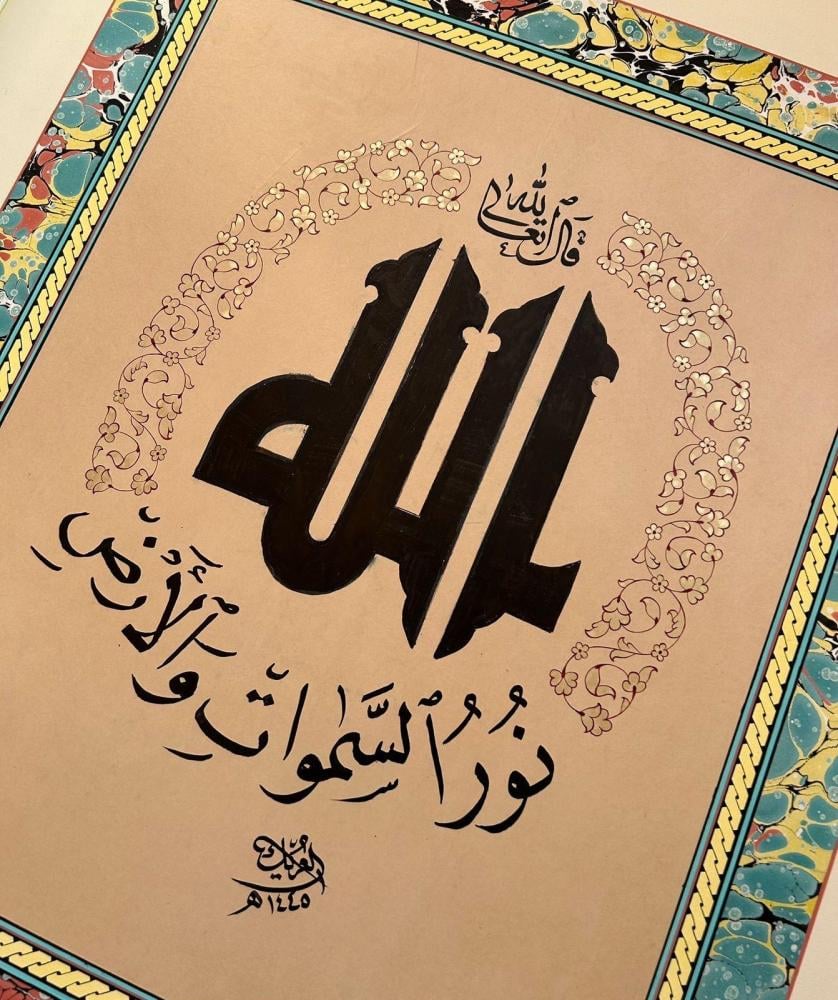 قَالَ اللّٰه تعالى
الله
نُورُ ٱلسَّمٰوَاتِ وَٱلْأَرْضِ
١٤٤٥هـ